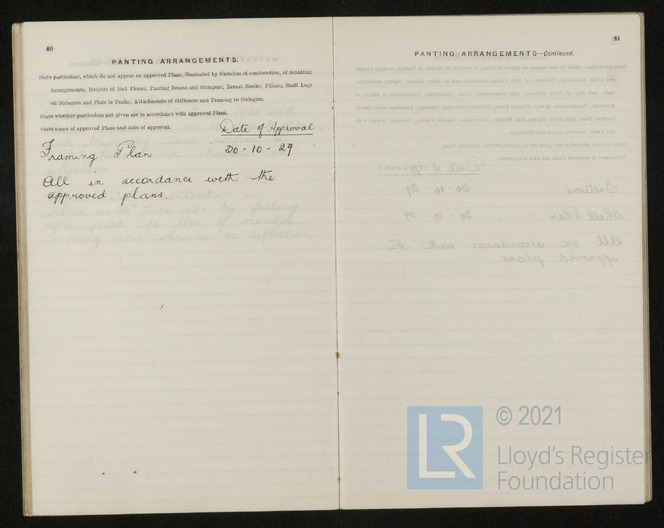 40
PANTING ARRANGEMENTS.
State particulars, which do not appear on approved Plans, illustrated by Sketches of construction, of Scantling
Arrangements, Heights of End Floors; Panting Beams and Stringers; Breast Hooks; Pillars, Shell Lugs
on Stringers and Flats in Peaks; Attachments of Stiffeners and Framing to Stringers.
State whether particulars not given are in accordance with approved Plans.
State name of approved Plans and date of approval.
Date of Approval
Framing Plan 30-10-29
All in accordance with the
approved plans.
41
PANTING ARRANGEMENTS—Continued.
LR
© 2021
Lloyd's Register
Foundation